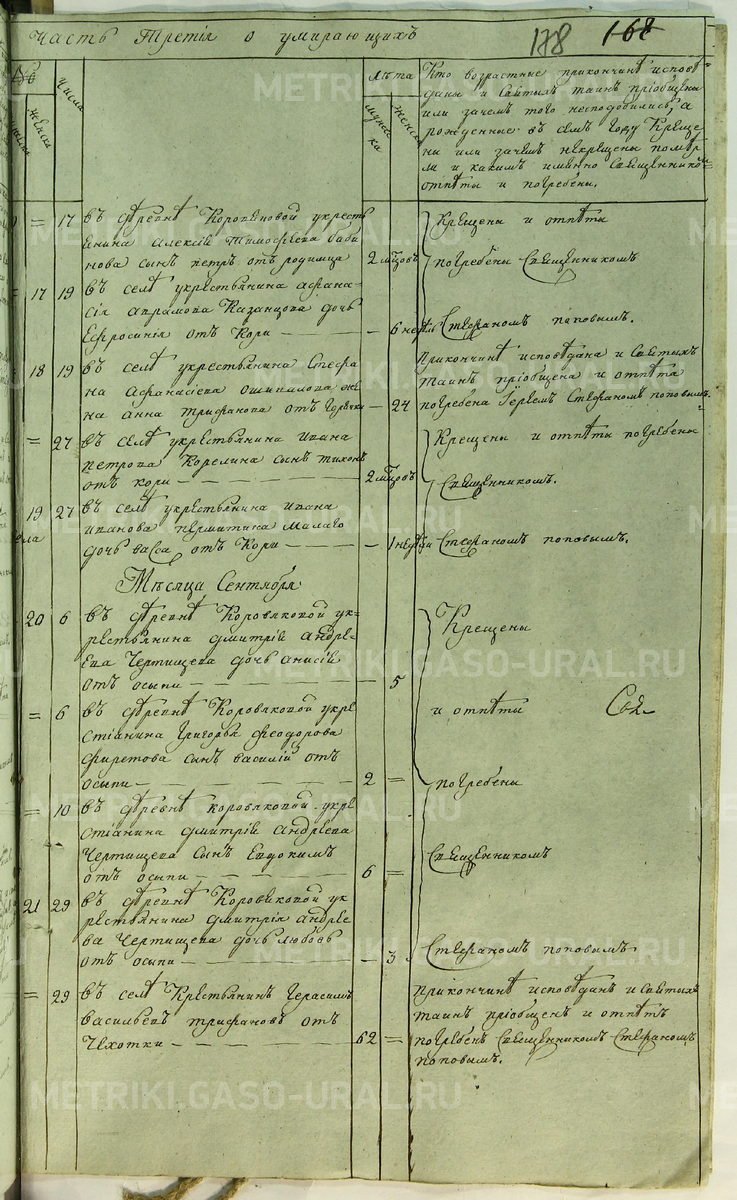 Часть Третія о умирающихъ 178 168
№ Числа Лѣта Кто возрастные прикончинѣ исповѣ
Женска мужеска женска даны и Святыхъ таинъ пріобщены
или зачемъ того несподобились, а
рожденные въ семъ году Креще
ны или зачемъ некрещены помер
ли и какимъ именно Священником
отпѣты и погребены.
= 17 въ деревнѣ укрестъ
янина Алексія Тимофѣева
сынъ петръ отъ родимца 2 мцовъ
Крещены и отпѣты
погребены Священникомъ
17 19 въ селѣ укрестьянина Афана-
сія Аврамова Казанцова дочь
Ефросинія отъ Кори — — — 6 недѣль Стефаномъ поповымъ.
18 19 въ селѣ укрестьянина Стефа
на Афанасіева же
на Анна Трифанова отъ горячки — 24
Прикончинѣ исповѣдана и Святыхъ
таинъ пріобщена и отпѣта
погребена Іереемъ Стефаномъ поповымъ.
= 27 въ селѣ укрестьянина Ивана
петрова Корелина сынъ тихонъ
отъ кори — — — — 2 мцовъ
Крещены и отпѣты погребены
Священникомъ.
19 27 въ селѣ укрестьянина Ивана
Иванова пермитина Малаго
дочь васса отъ Кори — — — 1 недѣли Стефаномъ поповымъ.
Мѣсяца Сентября
20 6 въ деревнѣ Коровяковой ук-
рестьянина дмитрій Андре-
ева Чертищева дочь анисія
отъ оспы — — — — — 5
Крещены
= 6 въ деревнѣ Коровяковой укре
стіанина Григорья феодорова
фиретова сынъ василій отъ
оспы — — — — 2 =
и отпѣты
погребены
= 10 въ деревнѣ коровяковой укре
стіанина дмитрій Андрѣева
Чертищева сынъ Евдокимъ
отъ оспы — — — — 6 =
Священникомъ
21 29 въ деревнѣ Коровяковой ук
рестьянина дмитрія андре
ева Чертищева дочь любовь
отъ оспы — — — — 3
Стефаномъ поповымъ
= 29 въ селѣ Крестьянинъ Герасимъ
васильевъ трифановъ отъ
Чехотки — — — — 62 =
прикончинѣ исповѣданъ и Святыхъ
таинъ пріобщенъ и отпѣтъ
погребенъ Священникомъ Стефаномъ
поповымъ.
METRIKI.GASO-URAL.RU